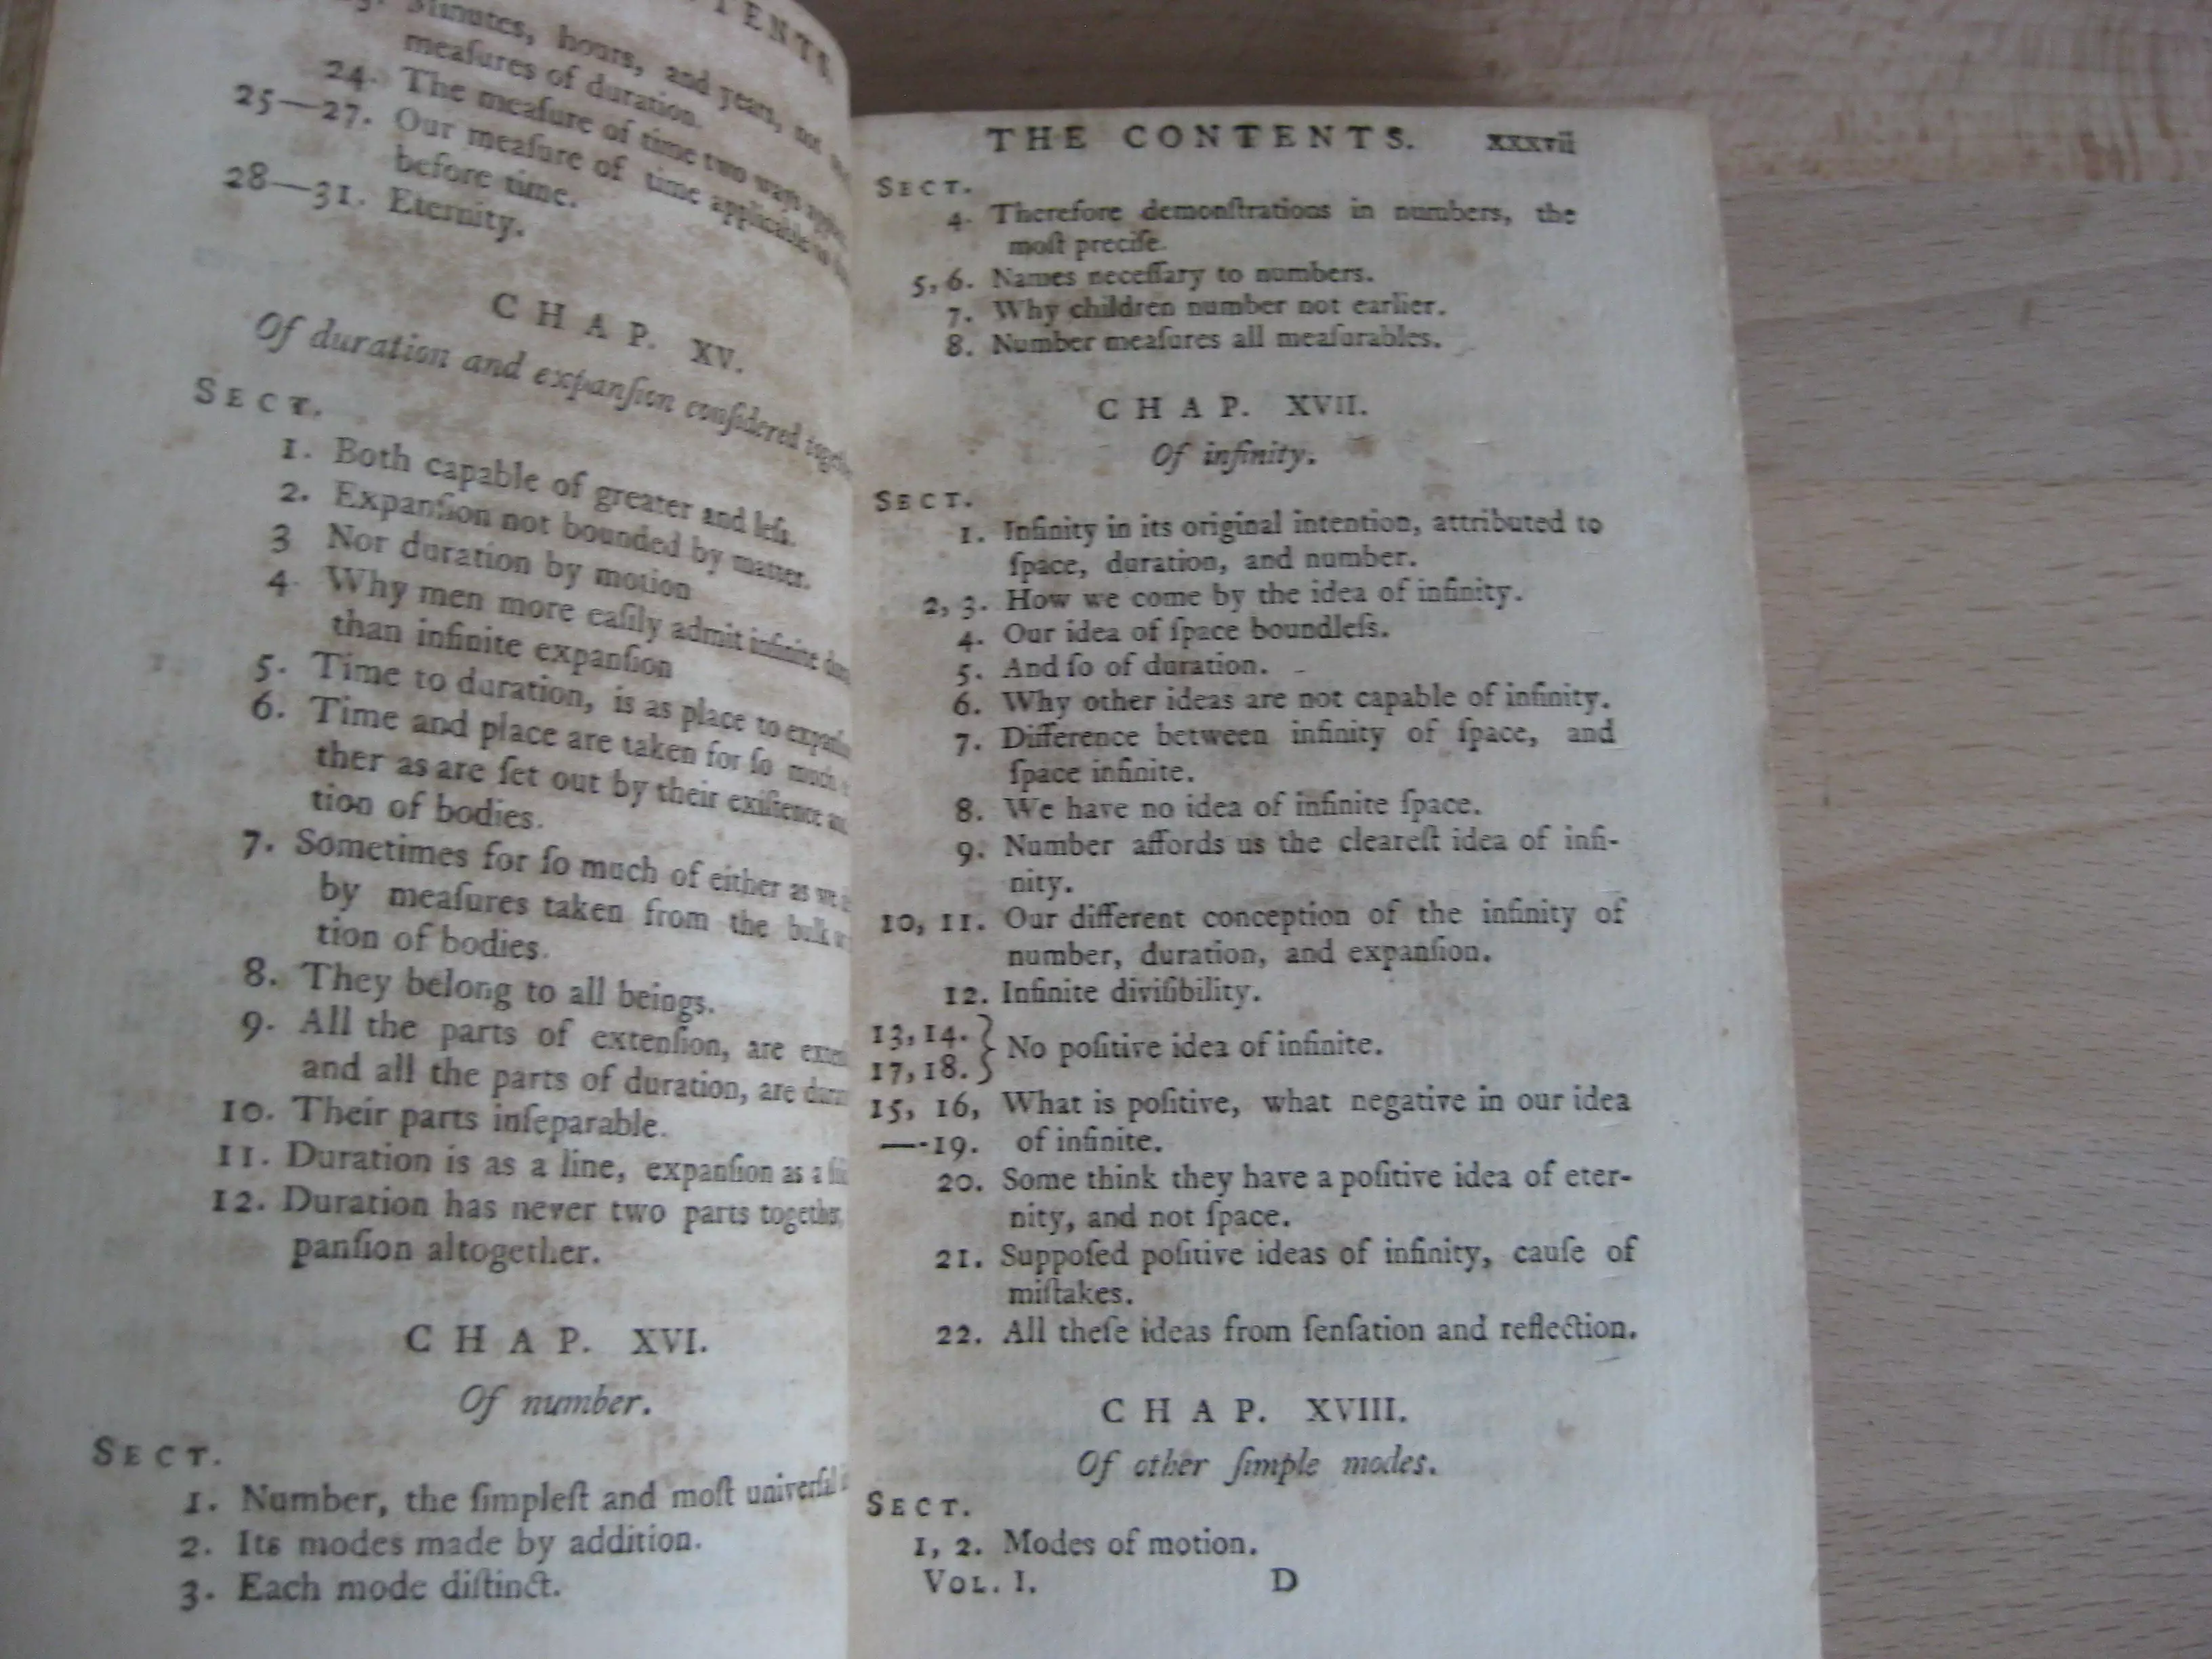 TENTS.
Minutes, hours, and years, not
meaſures of duration.
24. The meaſure of time two ways
25—27. Our meaſure of time applicable to
before time.
28—31. Eternity.
CHAP. XV.
Of duration and expanſion conſidered
SECT.
1. Both capable of greater and leſs.
2. Expanſion not bounded by matter.
3 Nor duration by motion
4. Why men more eaſily admit infinite
than infinite expanſion
5. Time to duration, is as place to
6. Time and place are taken for ſo much
ther as are ſet out by their exiſtence
tion of bodies.
7. Sometimes for ſo much of either as we
by meaſures taken from the bulk
tion of bodies.
8. They belong to all beings.
9. All the parts of extenſion, are
and all the parts of duration, are
10. Their parts inſeparable.
11. Duration is as a line, expanſion as a
12. Duration has never two parts together,
panſion altogether.
CHAP. XVI.
Of number.
SECT.
1. Number, the ſimpleſt and moſt univerſal
2. Its modes made by addition.
3. Each mode diſtinct.
THE CONTENTS. xxxvii
SECT.
4. Therefore demonſtrations in numbers, the
moſt preciſe.
5, 6. Names neceſſary to numbers.
7. Why children number not earlier.
8. Number meaſures all meaſurables.
CHAP. XVII.
Of infinity.
SECT.
1. Infinity in its original intention, attributed to
ſpace, duration, and number.
2, 3. How we come by the idea of infinity.
4. Our idea of ſpace boundleſs.
5. And ſo of duration.
6. Why other ideas are not capable of infinity.
7. Difference between infinity of ſpace, and
ſpace infinite.
8. We have no idea of infinite ſpace.
9. Number affords us the cleareſt idea of infi-
nity.
10, 11. Our different conception of the infinity of
number, duration, and expanſion.
12. Infinite diviſibility.
13, 14. }
17, 18. } No poſitive idea of infinite.
15, 16, What is poſitive, what negative in our idea
—-19. of infinite.
20. Some think they have a poſitive idea of eter-
nity, and not ſpace.
21. Suppoſed poſitive ideas of infinity, cauſe of
miſtakes.
22. All theſe ideas from ſenſation and reflection.
CHAP. XVIII.
Of other ſimple modes.
SECT.
1, 2. Modes of motion.
VOL. I. D